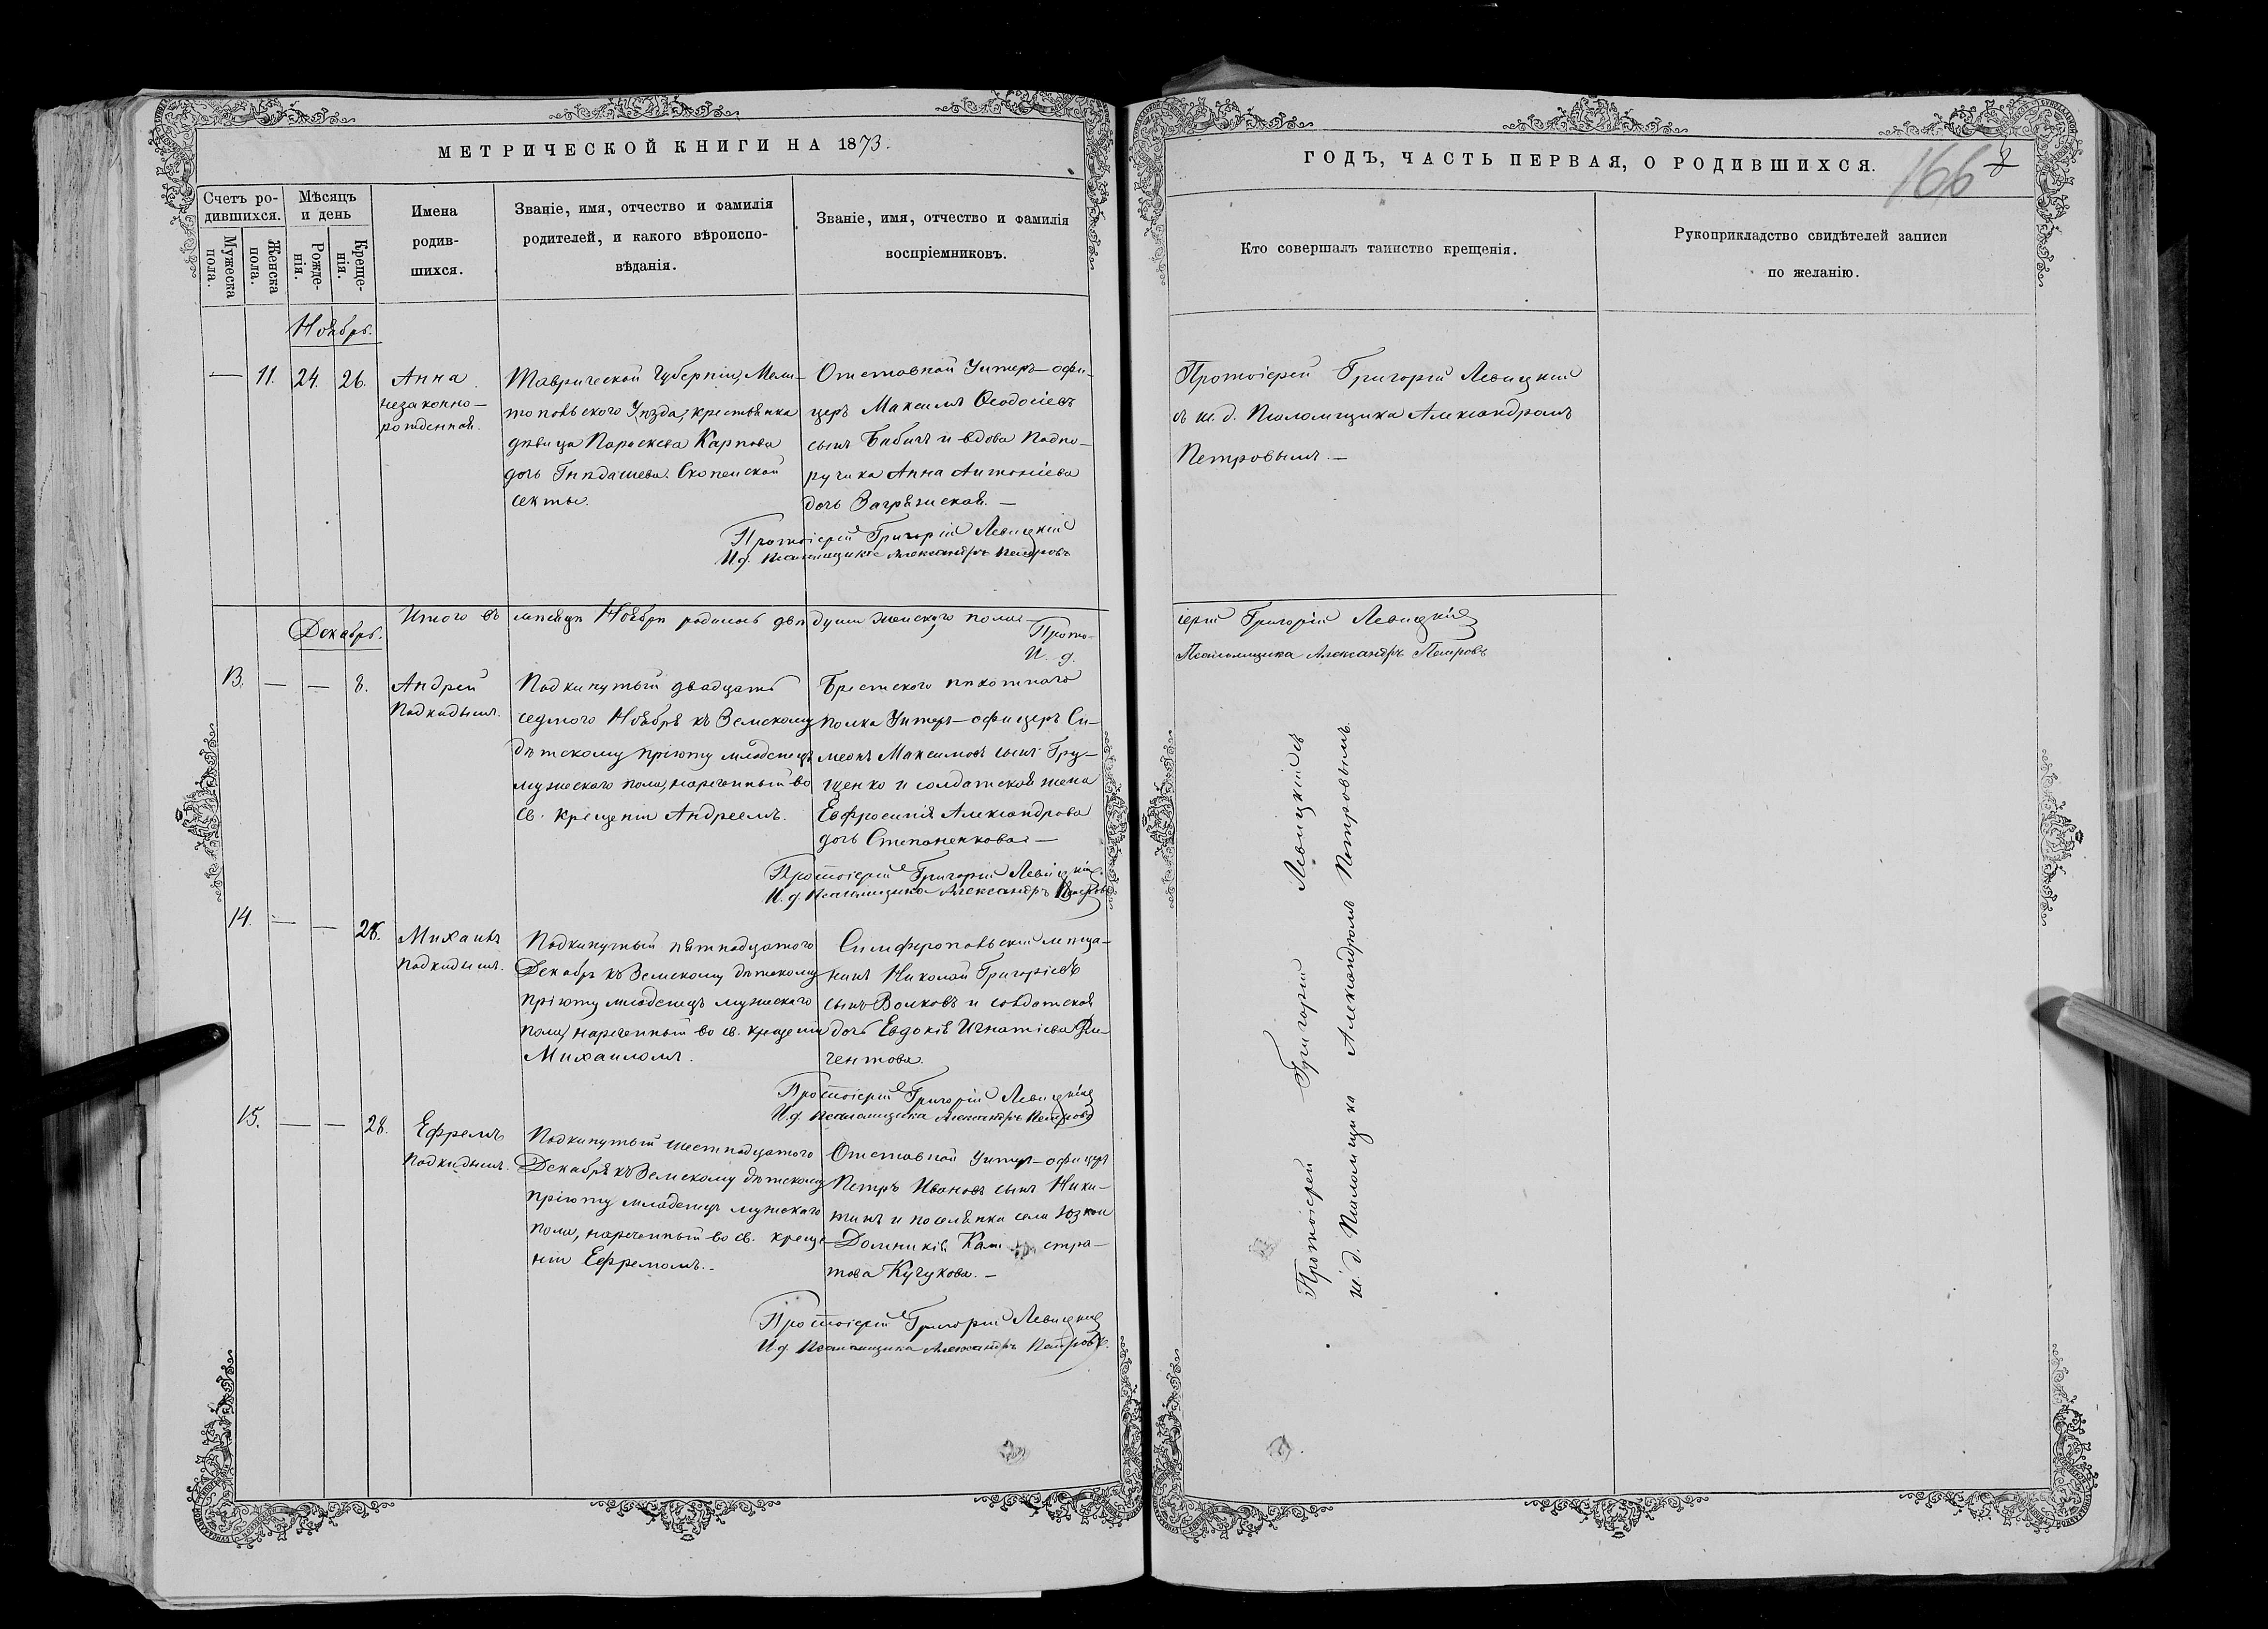 МЕТРИЧЕСКОЙ КНИГИ НА 1873.
Счетъ ро-
дившихся.
Мужеска
пола.
Женска
пола.
Мѣсяцъ
и день
Рожде-
нія.
Креще-
нія.
Имена
родив-
шихся.
Званіе, имя, отчество и фамилія
родителей, и какого вѣроиспо-
вѣданія.
Званіе, имя, отчество и фамилія
воспріемниковъ.
Ноябрь.
— 11. 24. 26.
Анна
незаконно-
рожденная.
Таврической Губерніи, Мели-
топольского Уѣзда, крестьянка
дѣвица Параскева Карпова
дочь Гнѣдашева. Скопеской
секты.
Отставной Унтеръ-офи-
церъ Максимъ Ѳеодосіевъ
сынъ Бабичъ и вдова Подпо-
ручика Анна Антоніева
дочь Загрязская. —
Протоіерей Григорій Левицкій
И.д. Псаломщика Александръ Петровъ
Итого въ мѣсяцѣ Ноябрѣ родилось двѣ души женскаго пола —
Прото-
И. д.
Декабрь.
13. — — 8.
Андрей
Подкидышъ.
Подкинутый двадцать
седмого Ноября къ Земскому
дѣтскому пріюту младенецъ
мужескаго пола, нареченный во
св. крещеніи Андреемъ.
Брестского пѣхотнаго
полка Унтеръ-офицеръ Си-
меонъ Максимовъ сынъ Гру-
щенко и солдатская жена
Евфросинія Александрова
дочь Степаненкова —
Протоіерей Григорій Левицкій
И.д. Псаломщика Александръ Петровъ
14. — — 28.
Михаилъ
Подкидышъ.
Подкинутый пятнадцатого
Декабря къ Земскому дѣтскому
пріюту младенецъ мужескаго
пола, нареченный во св. крещеніи
Михаиломъ.
Симферопольскій мѣща-
нинъ Николай Григоріевъ
сынъ Волковъ и солдатская
дочь Евдокія Игнатіева
чентова.
Протоіерей Григорій Левицкій
И.д. Псаломщика Александръ Петровъ
15. — — 28.
Ефремъ
Подкидышъ.
Подкинутый шестнадцатого
Декабря къ Земскому дѣтскому
пріюту младенецъ мужскаго
пола, нареченный во св. креще-
ніи Ефремомъ. -
Отставной Унтеръ-офицеръ
Петръ Ивановъ сынъ Ники-
тинъ и поселянка села
Домникія стра-
това Кучукова. —
Протоіерей Григорій Левицкій
И.д. Псаломщика Александръ Петровъ.
ГОДЪ, ЧАСТЬ ПЕРВАЯ, О РОДИВШИХСЯ.
166
Кто совершалъ таинство крещенія.
Рукоприкладство свидѣтелей записи
по желанію.
Протоіерей Григорій Левицкій
съ и. д. Псаломщика Александромъ
Петровымъ. —
іерей Григорій Левицкій
Псаломщика Александръ Петровъ
Протоіерей Григорій Левицкій съ
и. д. Псаломщика Александромъ Петровымъ.